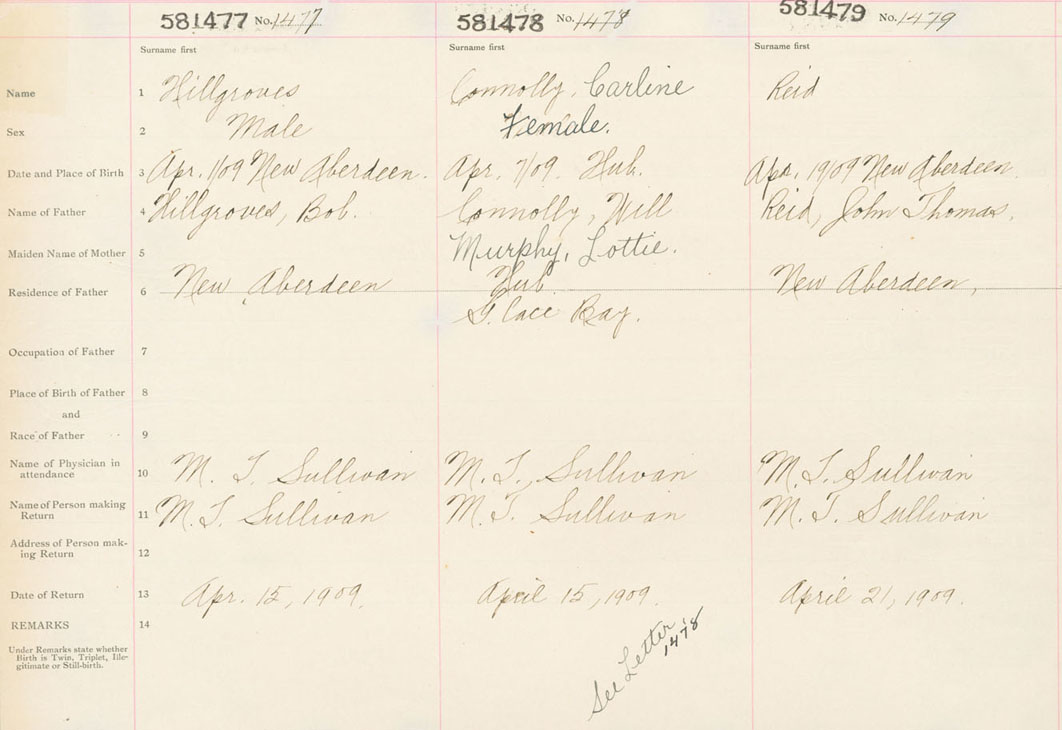 581477 No. 1477
581478 No. 1478
581479 No. 1479
Surname first
Surname first
Surname first
Name 1 Hillgroves
Connolly, Carline
Reid
Sex 2 Male
Female.
Date and Place of Birth 3 Apr. 1/09 New Aberdeen.
Apr. 7/09. Hub.
Apr. 19/09 New Aberdeen.
Name of Father 4 Hillgroves, Bob.
Connolly, Will
Reid, John Thomas.
Maiden Name of Mother 5
Murphy, Lottie.
Residence of Father 6 New Aberdeen
Hub
Glace Bay.
New Aberdeen,
Occupation of Father 7
Place of Birth of Father 8
and
Race of Father 9
Name of Physician in
attendance 10 M. T. Sullivan
M. T. Sullivan
M. T. Sullivan
Name of Person making
Return 11 M. T. Sullivan
M. T. Sullivan
M. T. Sullivan
Address of Person mak-
ing Return 12
Date of Return 13 Apr. 15, 1909.
April 15, 1909.
April 21, 1909.
REMARKS 14
Under Remarks state whether
Birth is Twin, Triplet, Ille-
gitimate or Still-birth.
See Letter
1478